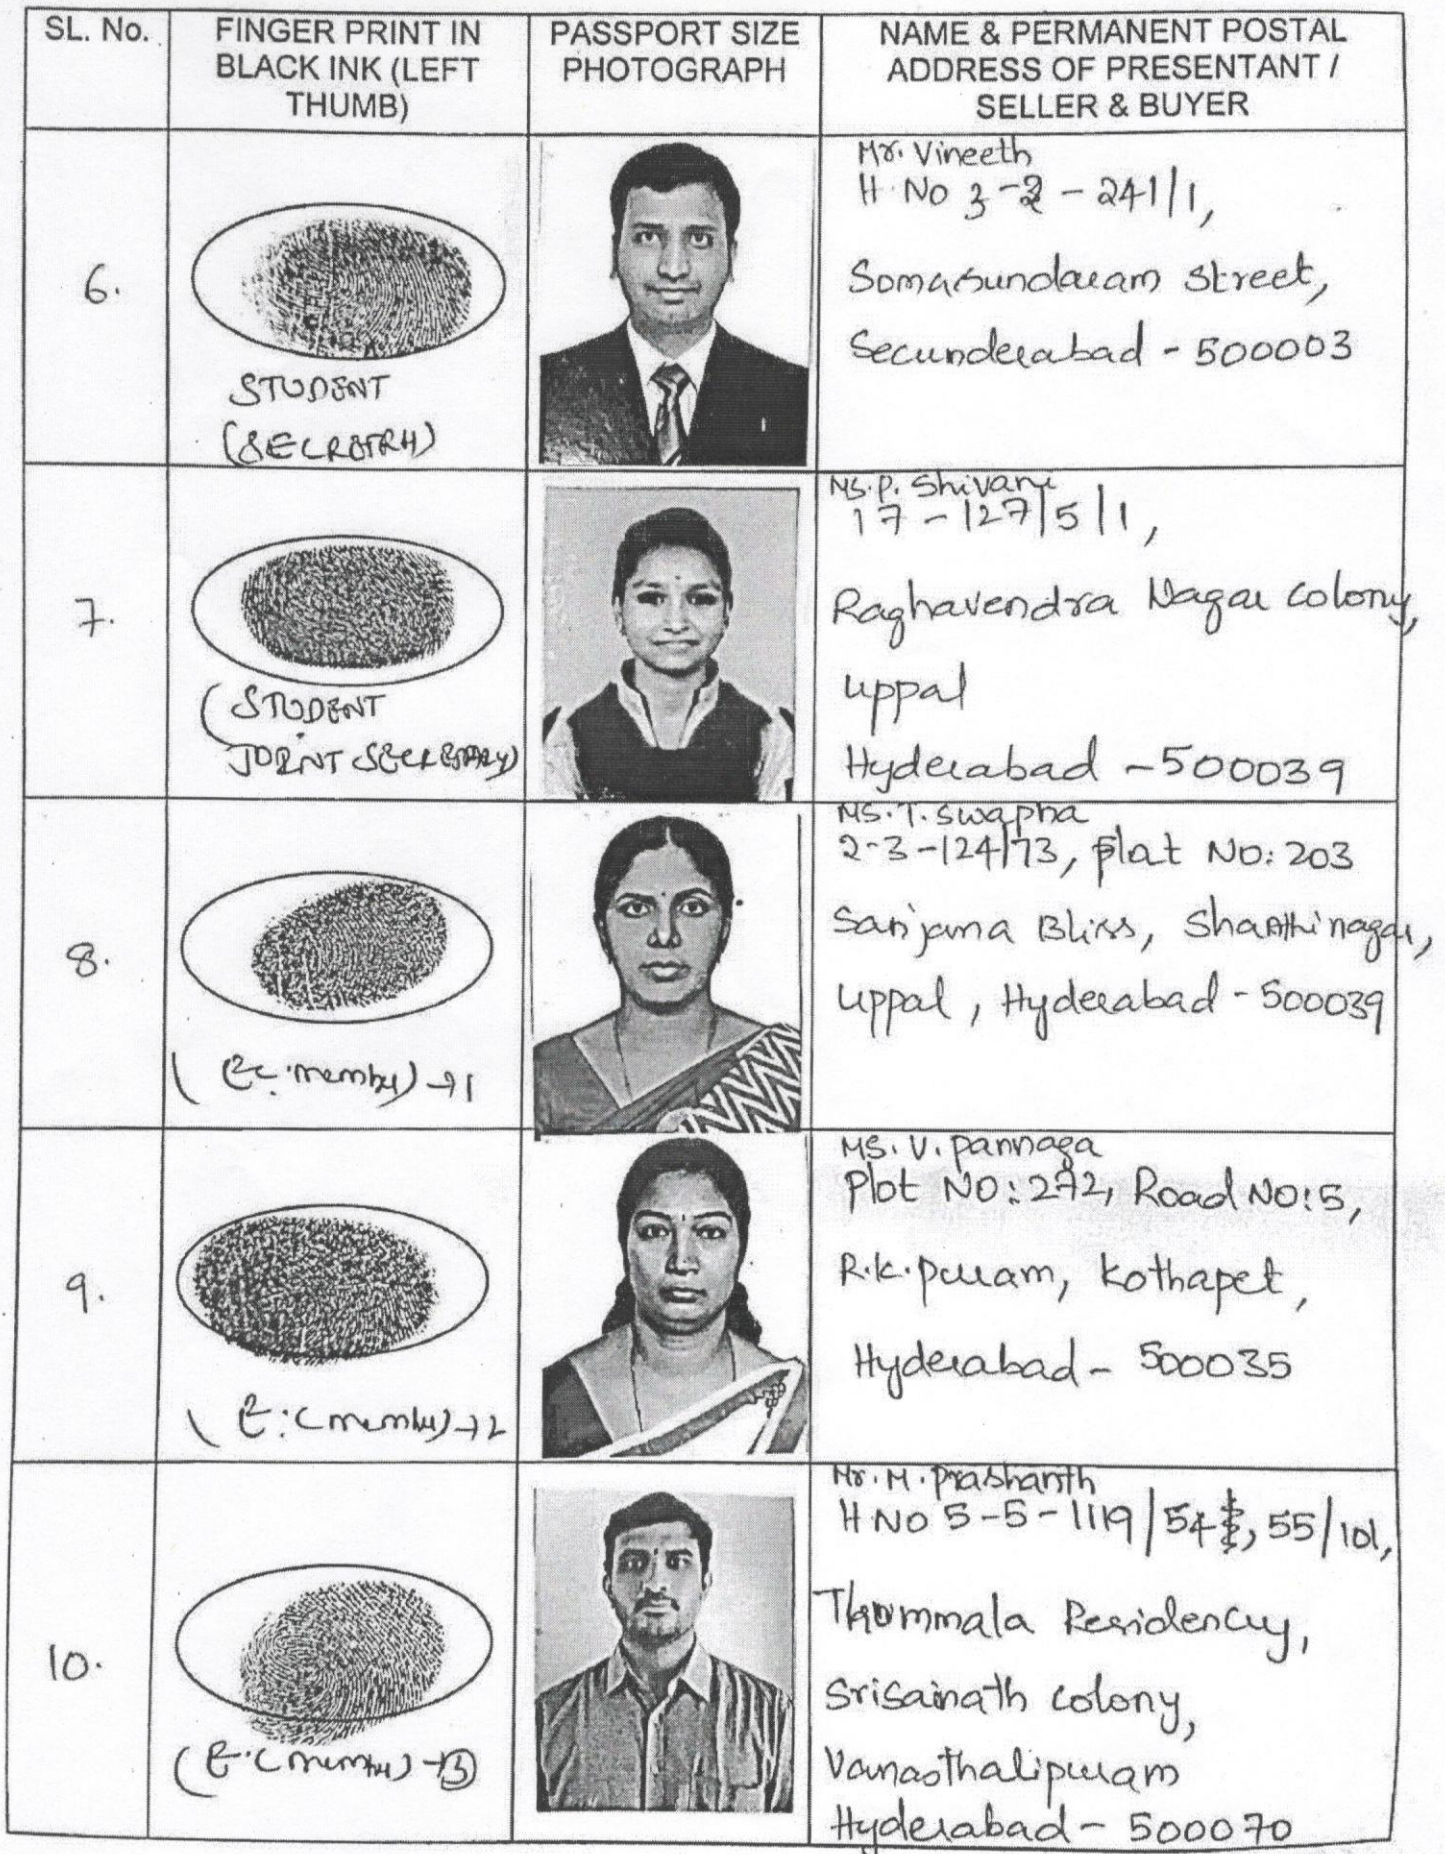 SL. No.
FINGER PRINT IN
BLACK INK (LEFT
THUMB)
PASSPORT SIZE
PHOTOGRAPH
NAME & PERMANENT POSTAL
ADDRESS OF PRESENTANT /
SELLER & BUYER
6.
STUDENT
Mr. Vineeth
H. No 3-2-241/1,
Somasundaram Street,
Secunderabad - 500003
7.
(STUDENT
JOINT SECRETARY)
MS. P. Shivani
17-127/5/1,
Raghavendra Nagar colony,
uppal
Hyderabad - 500039
8.
(E.C. member) → 1
MS. T. Swapna
2-3-124/73, plat NO: 203
Sanjama Bliss, Shanthinagar,
uppal, Hyderabad - 500039
9.
(E.C member) → 2
MS. V. pannaga
Plot NO: 272, Road NO: 5,
R.K. puram, kothapet,
Hyderabad - 500035
10.
(E.C member) → 3
Mr. M. prashanth
H NO 5-5-1119/54, 55/101,
Thummala Residency,
Srisainath colony,
Vanasthalipuram
Hyderabad - 500070